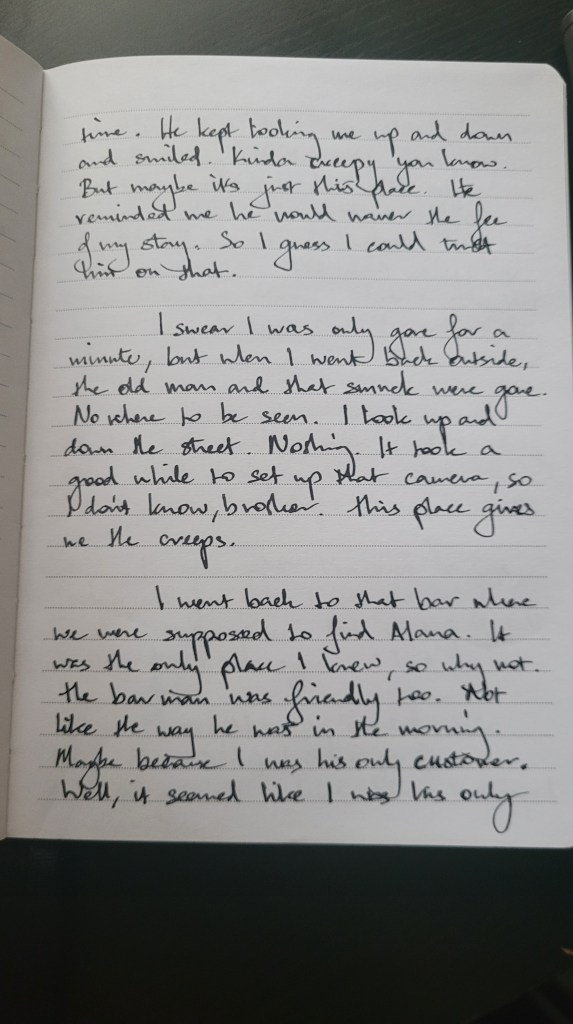 time. He kept looking me up and down
and smiled. Kinda creepy you know.
But maybe it's just this place. He
reminded me he would waver the fee
of my stay. So I guess I could trust
him on that.
I swear I was only gone for a
minute, but when I went back outside,
the old man and that smuck were gone.
No where to be seen. I look up and
down the street. Nothing. It took a
good while to set up that camera, so
I don't know, brother. This place gives
me the creeps.
I went back to that bar where
we were supposed to find Alana. It
was the only place I knew, so why not.
The barman was friendly too. Not
like the way he was in the morning.
Maybe because I was his only customer.
Well, it seemed like I was his only